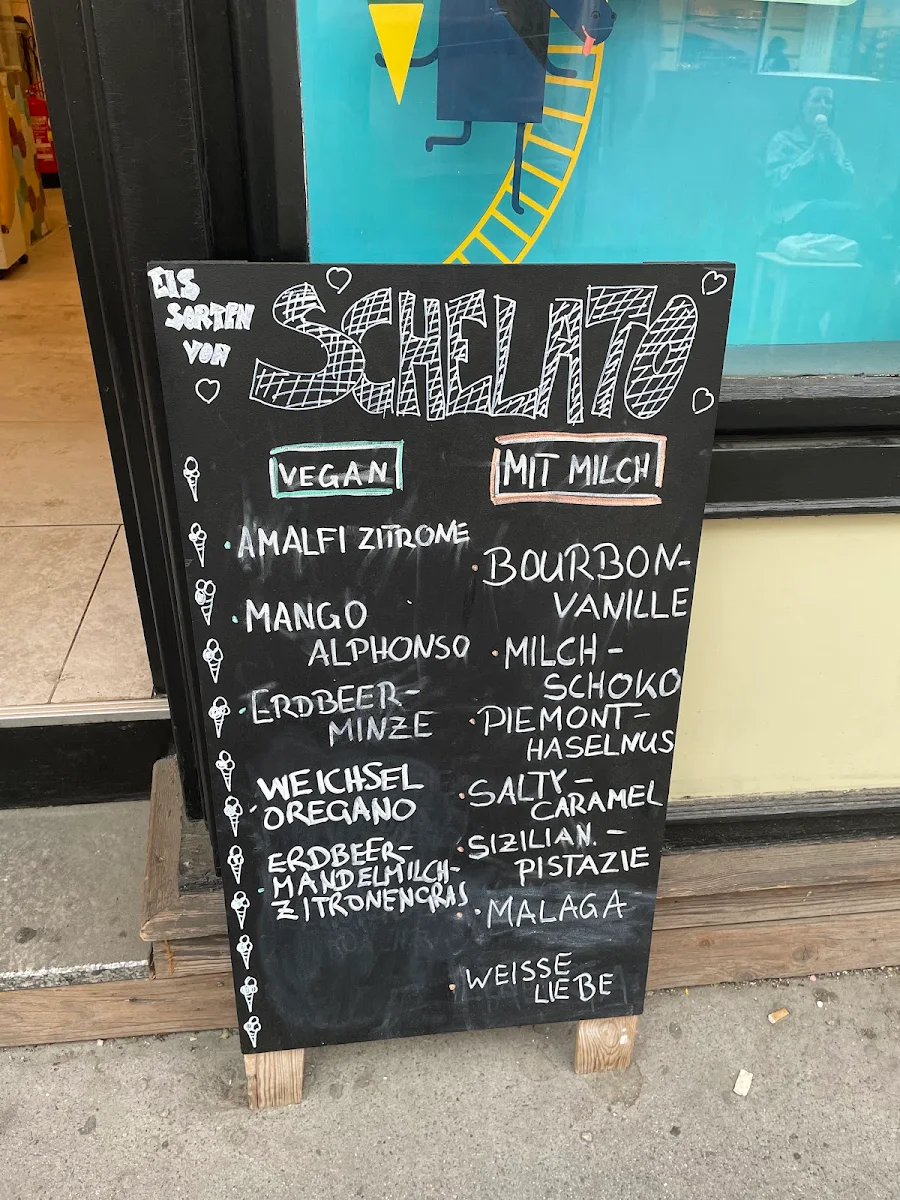 EIS
SORTEN
VON
SCHELATO
VEGAN
AMALFI ZITRONE
MANGO
ALPHONSO
ERDBEER-
MINZE
WEICHSEL
OREGANO
ERDBEER-
MANDELMILCH-
ZITRONENGRAS
MIT MILCH
BOURBON-
VANILLE
MILCH-
SCHOKO
PIEMONT-
HASELNUS
SALTY-
CARAMEL
SIZILIAN.-
PISTAZIE
MALAGA
WEISSE
LIEBE